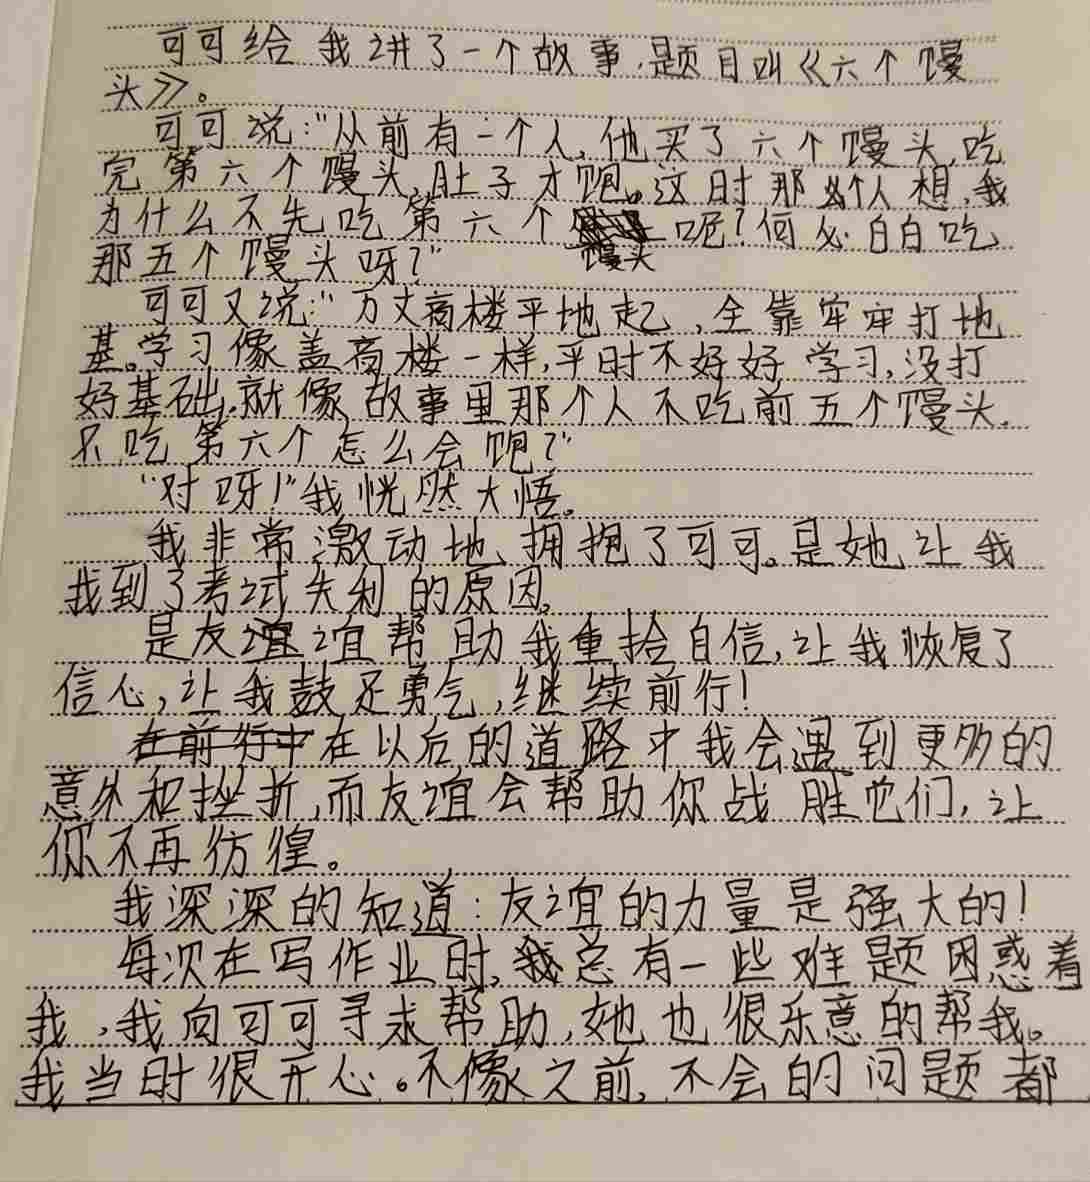 可可给我讲了一个故事,题目叫《六个馒
头》。
可可说:"从前有一个人,他买了六个馒头,吃
完第六个馒头,肚子才饱。这时那个人想,我
为什么不先吃第六个馒头呢?何必白白吃
那五个馒头呀?"
可可又说:"万丈高楼平地起,全靠牢牢打地
基。学习像盖高楼一样,平时不好好学习,没打
好基础,就像故事里那个人不吃前五个馒头。
只吃第六个怎么会饱?"
"对呀!"我恍然大悟。
我非常激动地拥抱了可可。是她让我
找到了考试失利的原因。
是友谊谊帮助我重拾自信,让我恢复了
信心,让我鼓足勇气,继续前行!
在前行中在以后的道路中我会遇到更多的
意外和挫折,而友谊会帮助你战胜它们,让
你不再彷徨。
我深深的知道:友谊的力量是强大的!
每次在写作业时,我总有一些难题困惑着
我,我向可可寻求帮助,她也很乐意的帮我。
我当时很开心。不像之前,不会的问题都